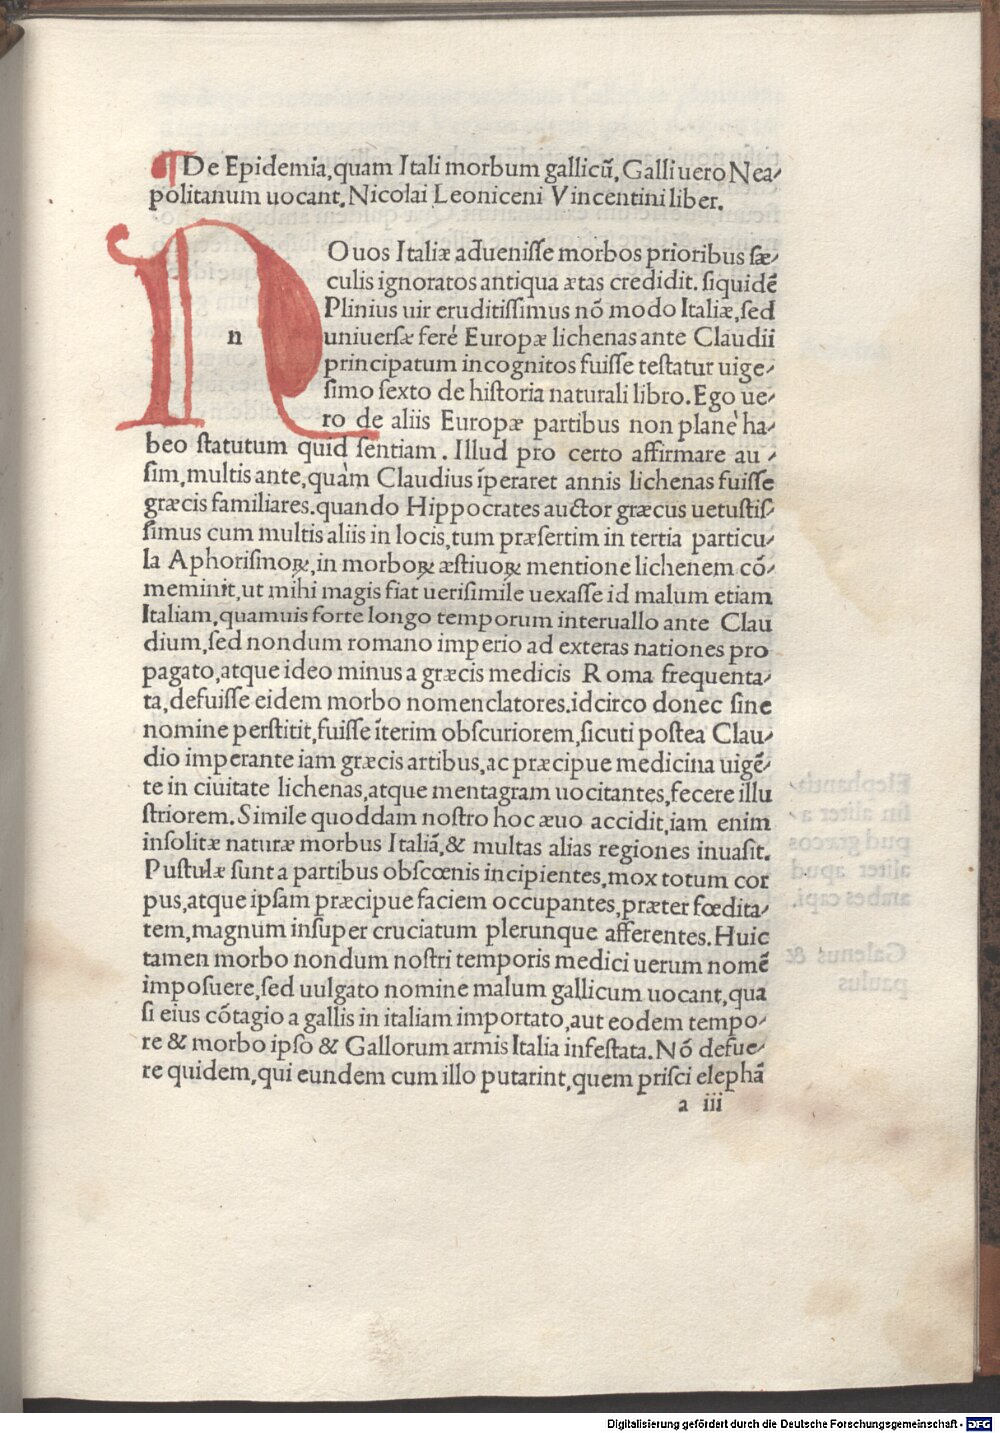 ¶De Epidemia,quam Itali morbum gallicū,Galli uero Nea⸗
politanum uocant,Nicolai Leoniceni Vincentini liber.
NOuos Italiæ aduenisse morbos prioribus sæ⸗
culis ignoratos antiqua ætas credidit. siquidē
Plinius uir eruditissimus nō modo Italiæ,sed
n
uniuersæ feré Europæ lichenas ante Claudii
principatum incognitos fuisse testatur uige⸗
simo sexto de historia naturali libro. Ego ue⸗
ro de aliis Europæ partibus non planè ha⸗
beo statutum quid sentiam. Illud pro certo affirmare au⸗
sim,multis ante,quàm Claudius īperaret annis lichenas fuisse
græcis familiares.quando Hippocrates auctor græcus uetustis⸗
simus cum multis aliis in locis,tum præsertim in tertia particu⸗
la Aphorismoꝝ,in morboꝝ æstiuoꝝ mentione lichenem cō⸗
meminit,ut mihi magis fiat uerisimile uexasse id malum etiam
Italiam,quamuis forte longo temporum interuallo ante Clau
dium,sed nondum romano imperio ad exteras nationes pro
pagato,atque ideo minus a græcis medicis Roma frequenta⸗
ta,defuisse eidem morbo nomenclatores.idcirco donec sine
nomine perstitit,fuisse īterim obscuriorem,sicuti postea Clau⸗
dio imperante iam græcis artibus,ac præcipue medicina uigē⸗
te in ciuitate lichenas,atque mentagram uocitantes,fecere illu
striorem. Simile quoddam nostro hoc æuo accidit,iam enim
insolitæ naturæ morbus Italiā,& multas alias regiones inuasit.
Pustulæ sunt a partibus obscœnis incipientes,mox totum cor
pus,atque ipsam præcipue faciem occupantes,præter fœdita⸗
tem,magnum insuper cruciatum plerunque afferentes. Huic
tamen morbo nondum nostri temporis medici uerum nomē
imposuere,sed uulgato nomine malum gallicum uocant,qua
si eius cōtagio a gallis in italiam importato,aut eodem tempo⸗
re & morbo ipso & Gallorum armis Italia infestata. Nō defue⸗
re quidem,qui eundem cum illo putarint,quem prisci elephā
a iii
Digitalisierung gefördert durch die Deutsche Forschungsgemeinschaft - DFG